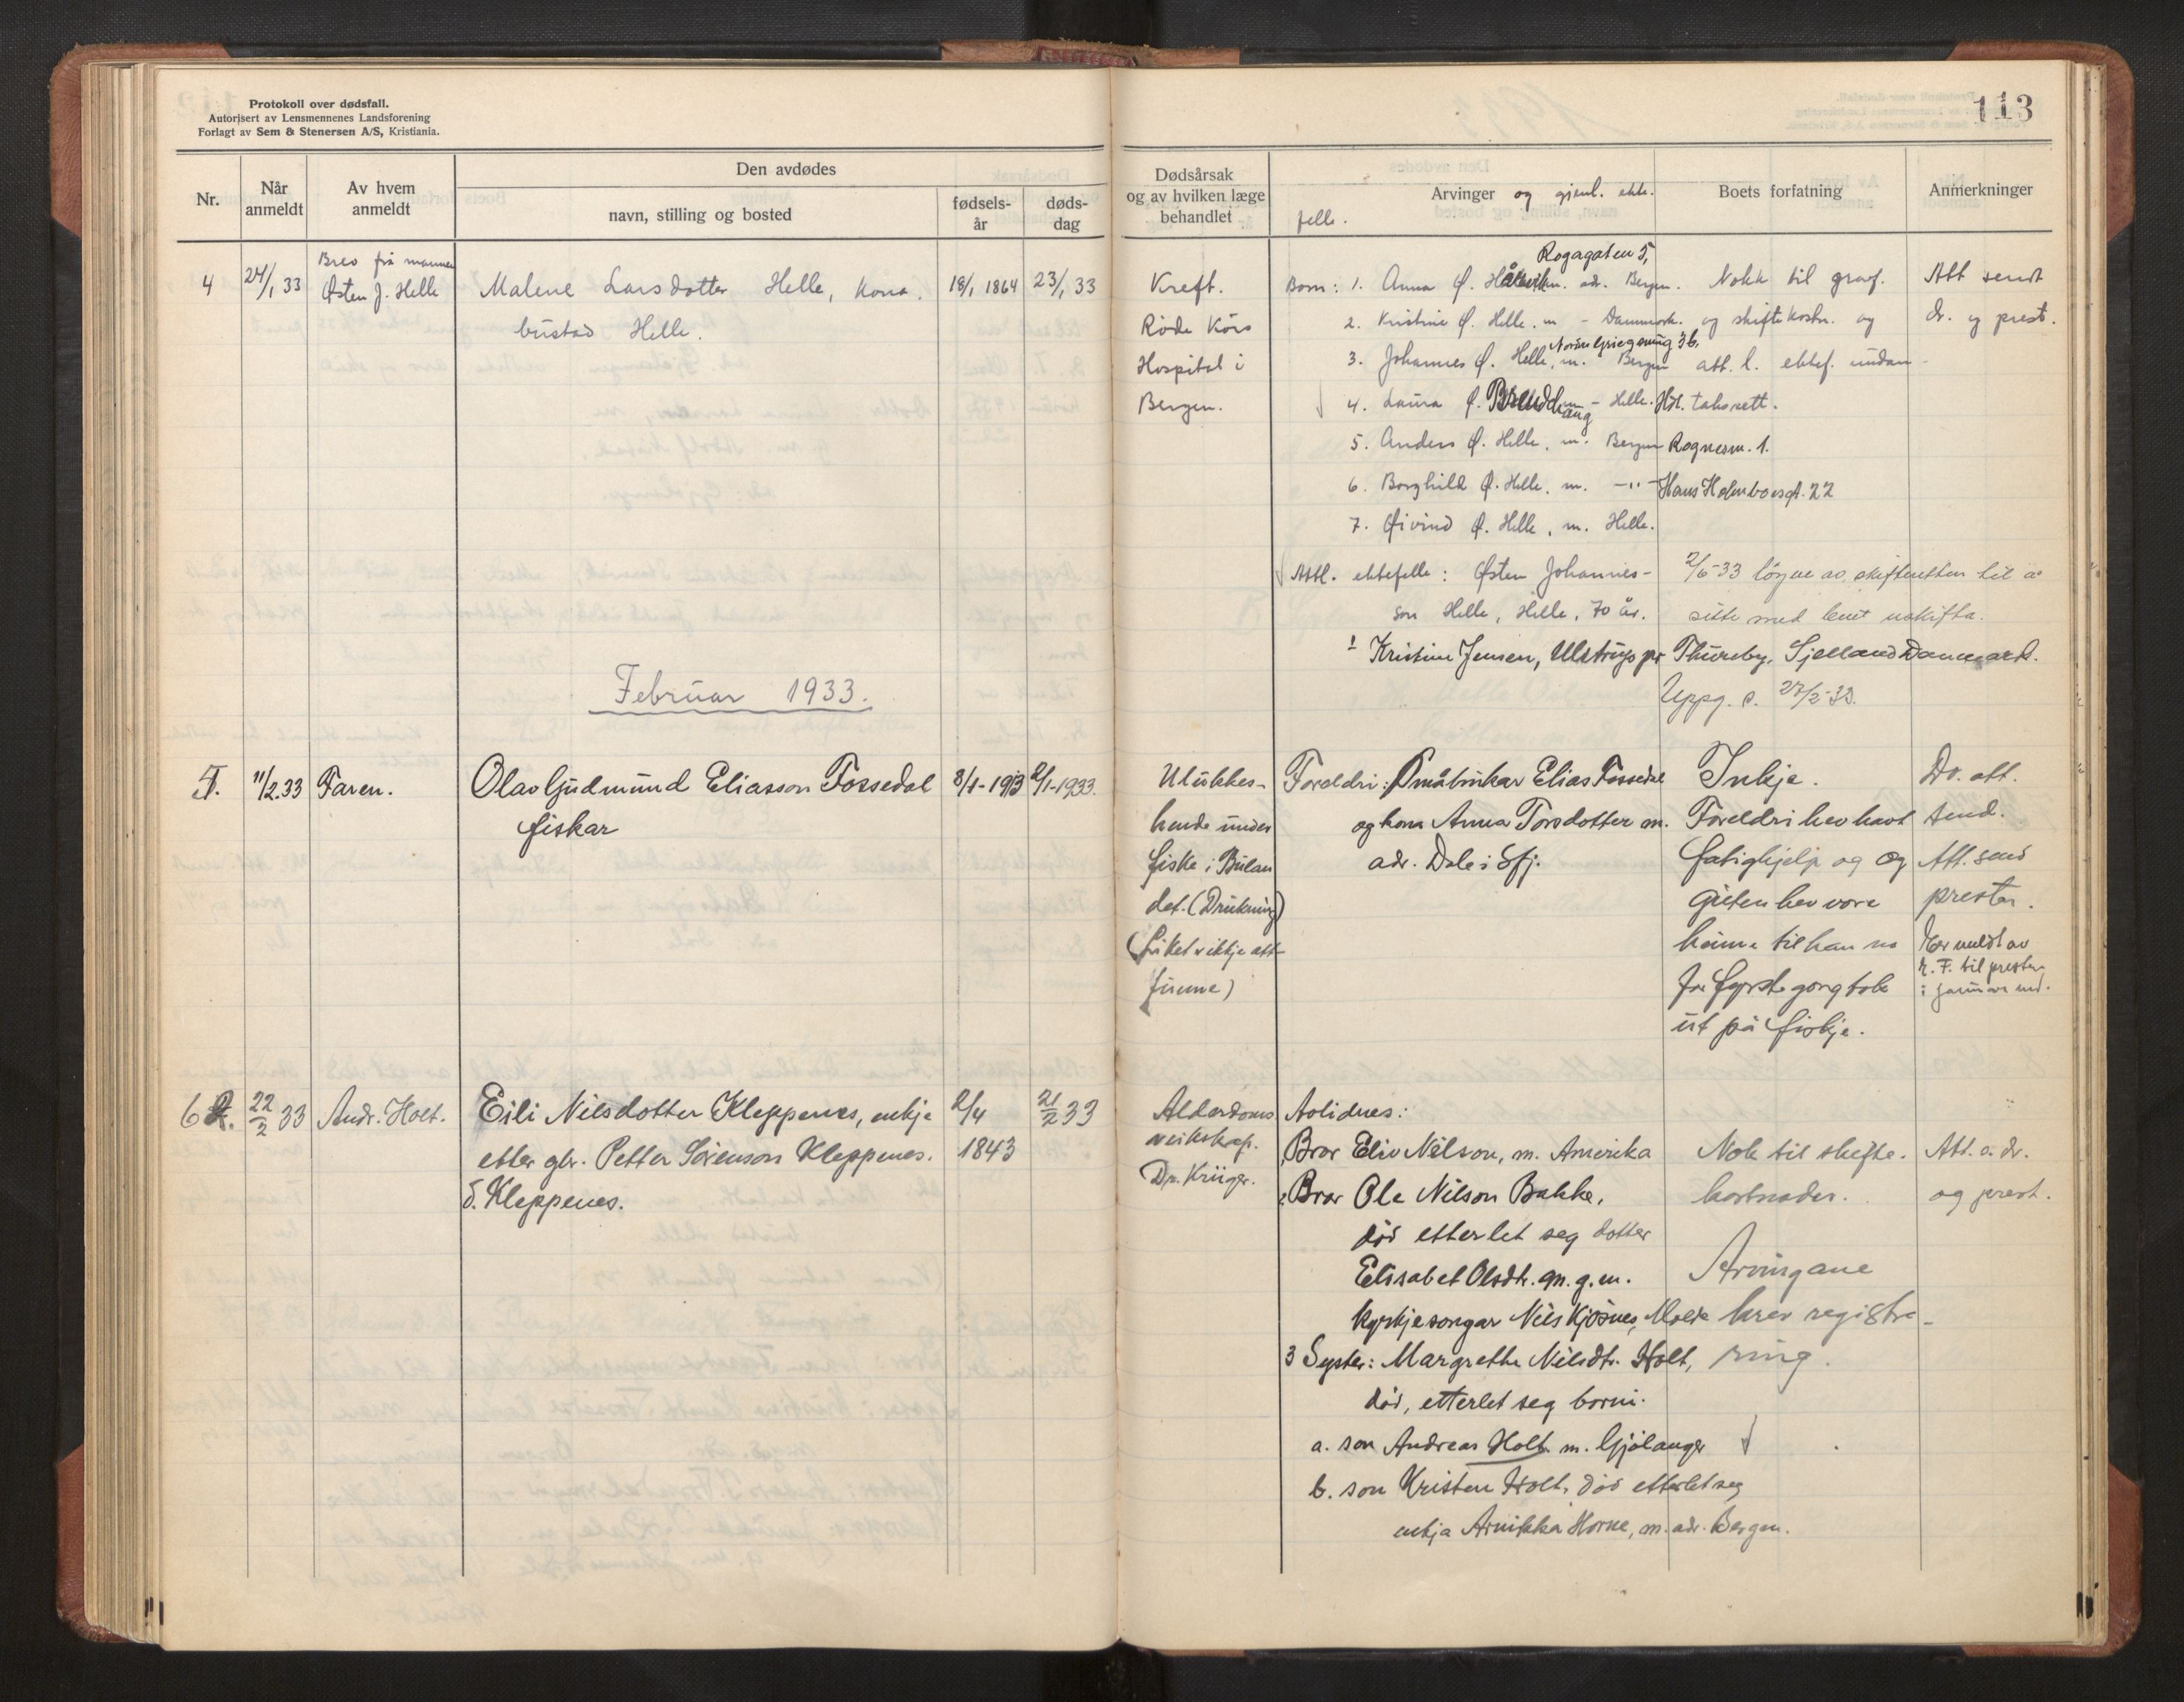 Protokoll over dødsfall.
Autorisert av Lensmennenes Landsforening
Forlagt av Sem & Stenersen A/S, Kristiania.
113
Nr.
Når anmeldt
Av hvem anmeldt
Den avdødes
navn, stilling og bosted
fødsels-år
døds-dag
Dødsårsak og av hvilken læge behandlet
Arvinger og gjenl. ekte-
felle.
Boets forfatning
Anmerkninger
4
24/1 33
Brev frå mannen
Østen J. Helle
Malene Larsdotter Helle, kona.
bustad Helle.
18/1 1864
23/1 33
Kreft.
Röde Kors
Hospital i
Bergen.
Rogagaten 5,
Born: 1. Anna Ø. m. adr. Bergen.
2. Kristine Ø. Helle. m - Danmark.
3. Johannes Ø. Helle, m. Bergen
4. Laura Ø. Brendehaug - Helle.
5. Anders Ø. Helle, m. Bergen Rognesm. 1.
6. Borghild Ø. Helle. m. -"- Hans Holmboesgt. 22
7. Øivind Ø. Helle, m. Helle.
Attl. ektefelle: Østen Johannes-
son Helle, Helle, 70 år.
! Kristine Jensen, Ulstrup pr Thureby, Sjelland Danmark.
Nokk til gravf.
og skiftekostn. og
att. l. ektef. undan-
taksrett.
2/6-33 löyve av skifteretten til å
sitte med buet uskifta.
Uppg. s. 27/2-33.
Att sendt
dr. og prest.
Februar 1933.
5.
11/2.33
Faren.
Olav Gudmund Eliasson Fossedal
fiskar
8/1-1913
2/1-1933.
Ulukkes-
hende under
fiske i Bulan
det. (Drukning)
(Liket ikkje att-
funne)
Foreldri: Småbrukar Elias Fossedal
og kona Anna Torsdotter m.
adr. Dale i Sfj.
Inkje.
Foreldri hev havt
fatighjelp og og
guten hev vore
heime til han no
for fyrste gong tok
ut på fiskje.
Do. att.
send.
Att. send
presten.
Er meldt av
til presten
i januar md.
6
22/2 33
Andr. Holt.
Eili Nilsdotter Kleppenes, enkje
etter gbr. Petter Sörenson Kleppenes.
d. Kleppenes.
2/4
1843
21/2 33
Alderdoms
veikskap.
Dr. Krüger.
Avlidnes:
1 Bror Eliv Nilson, m. Amerika
2 Bror Ole Nilson Bakke,
död etterlet seg dotter
Elisabet Olsdtr. m. g.m.
kyrkjesongar Nils Kjösnes, Molde
3 Syster: Margrethe Nilsdtr. Holt,
död, etterlet seg born:
a. son Andreas Holt m. Gjölanger
b. son Kristen Holt, död etterlet seg
enkja Arnikka Horne, m. adr. Bergen.
Nok til skifte-
kostnader.
Arvingane
krev registre-
ring.
Att. s. dr.
og prest.